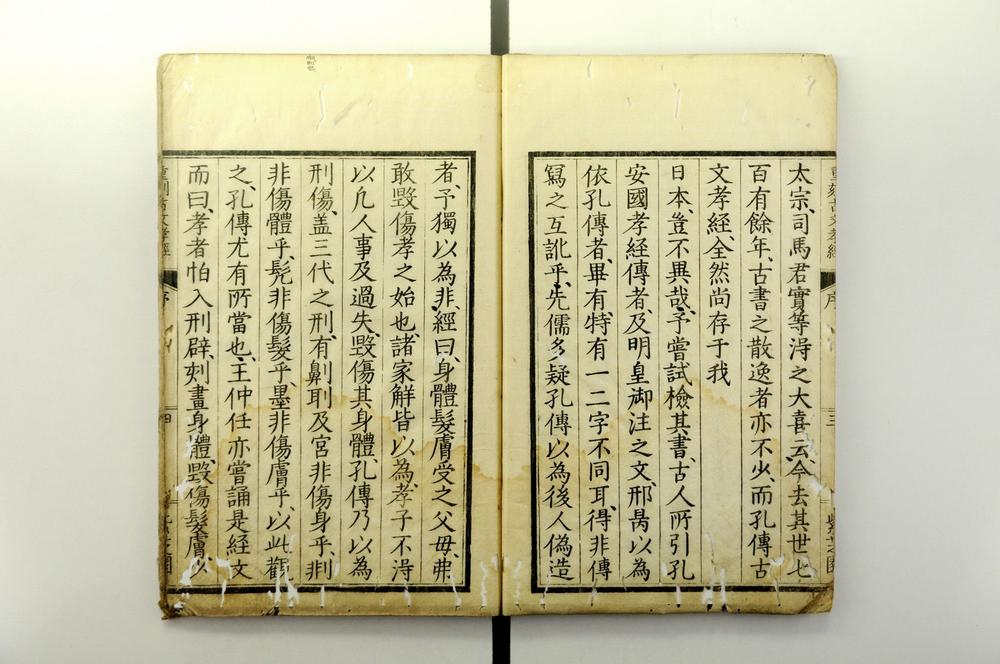 太宗、司馬君實等淂之大喜云、今去其世七
百有餘年、古書之散逸者亦不少、而孔傳古
文孝經、全然尚存于我
日本、豈不異哉、予嘗試檢其書、古人所引孔
安國孝經傳者、及明皇御注之文、邢昺以為
依孔傳者、畢有、特有一二字不同耳、得非傳
寫之互訛乎、先儒多疑孔傳以為後人偽造
者、予獨以為非、經曰、身體髮膚受之父毋、弗
敢毀傷孝之始也、諸家解皆以為孝子不淂
以凢人事及過失、毀傷其身體孔傳乃以為
刑傷、盖三代之刑、有劓刵及宮非傷身乎、刖
非傷體乎、髡非傷髮乎、墨非傷膚乎、以此觀
之、孔傳尤有所當也、王仲任亦嘗誦是經文
而曰、孝者怕入刑辟、刻畫身體、毀傷髮膚、以
重刻古文孝經
序
三
紫芝園
重刻古文孝經
序
四